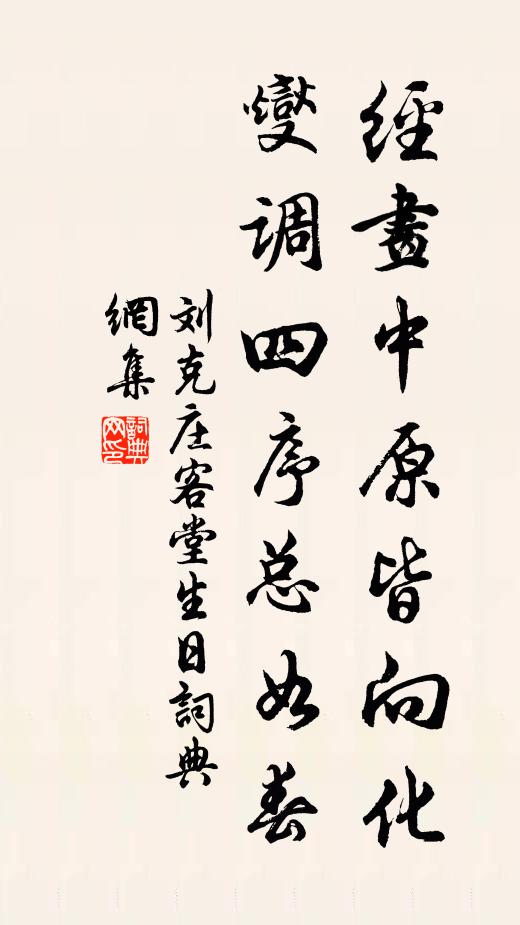 經畫中原皆向化
燮调四序总如春
刘克庄客堂生日詞典
網集
詞典
网印